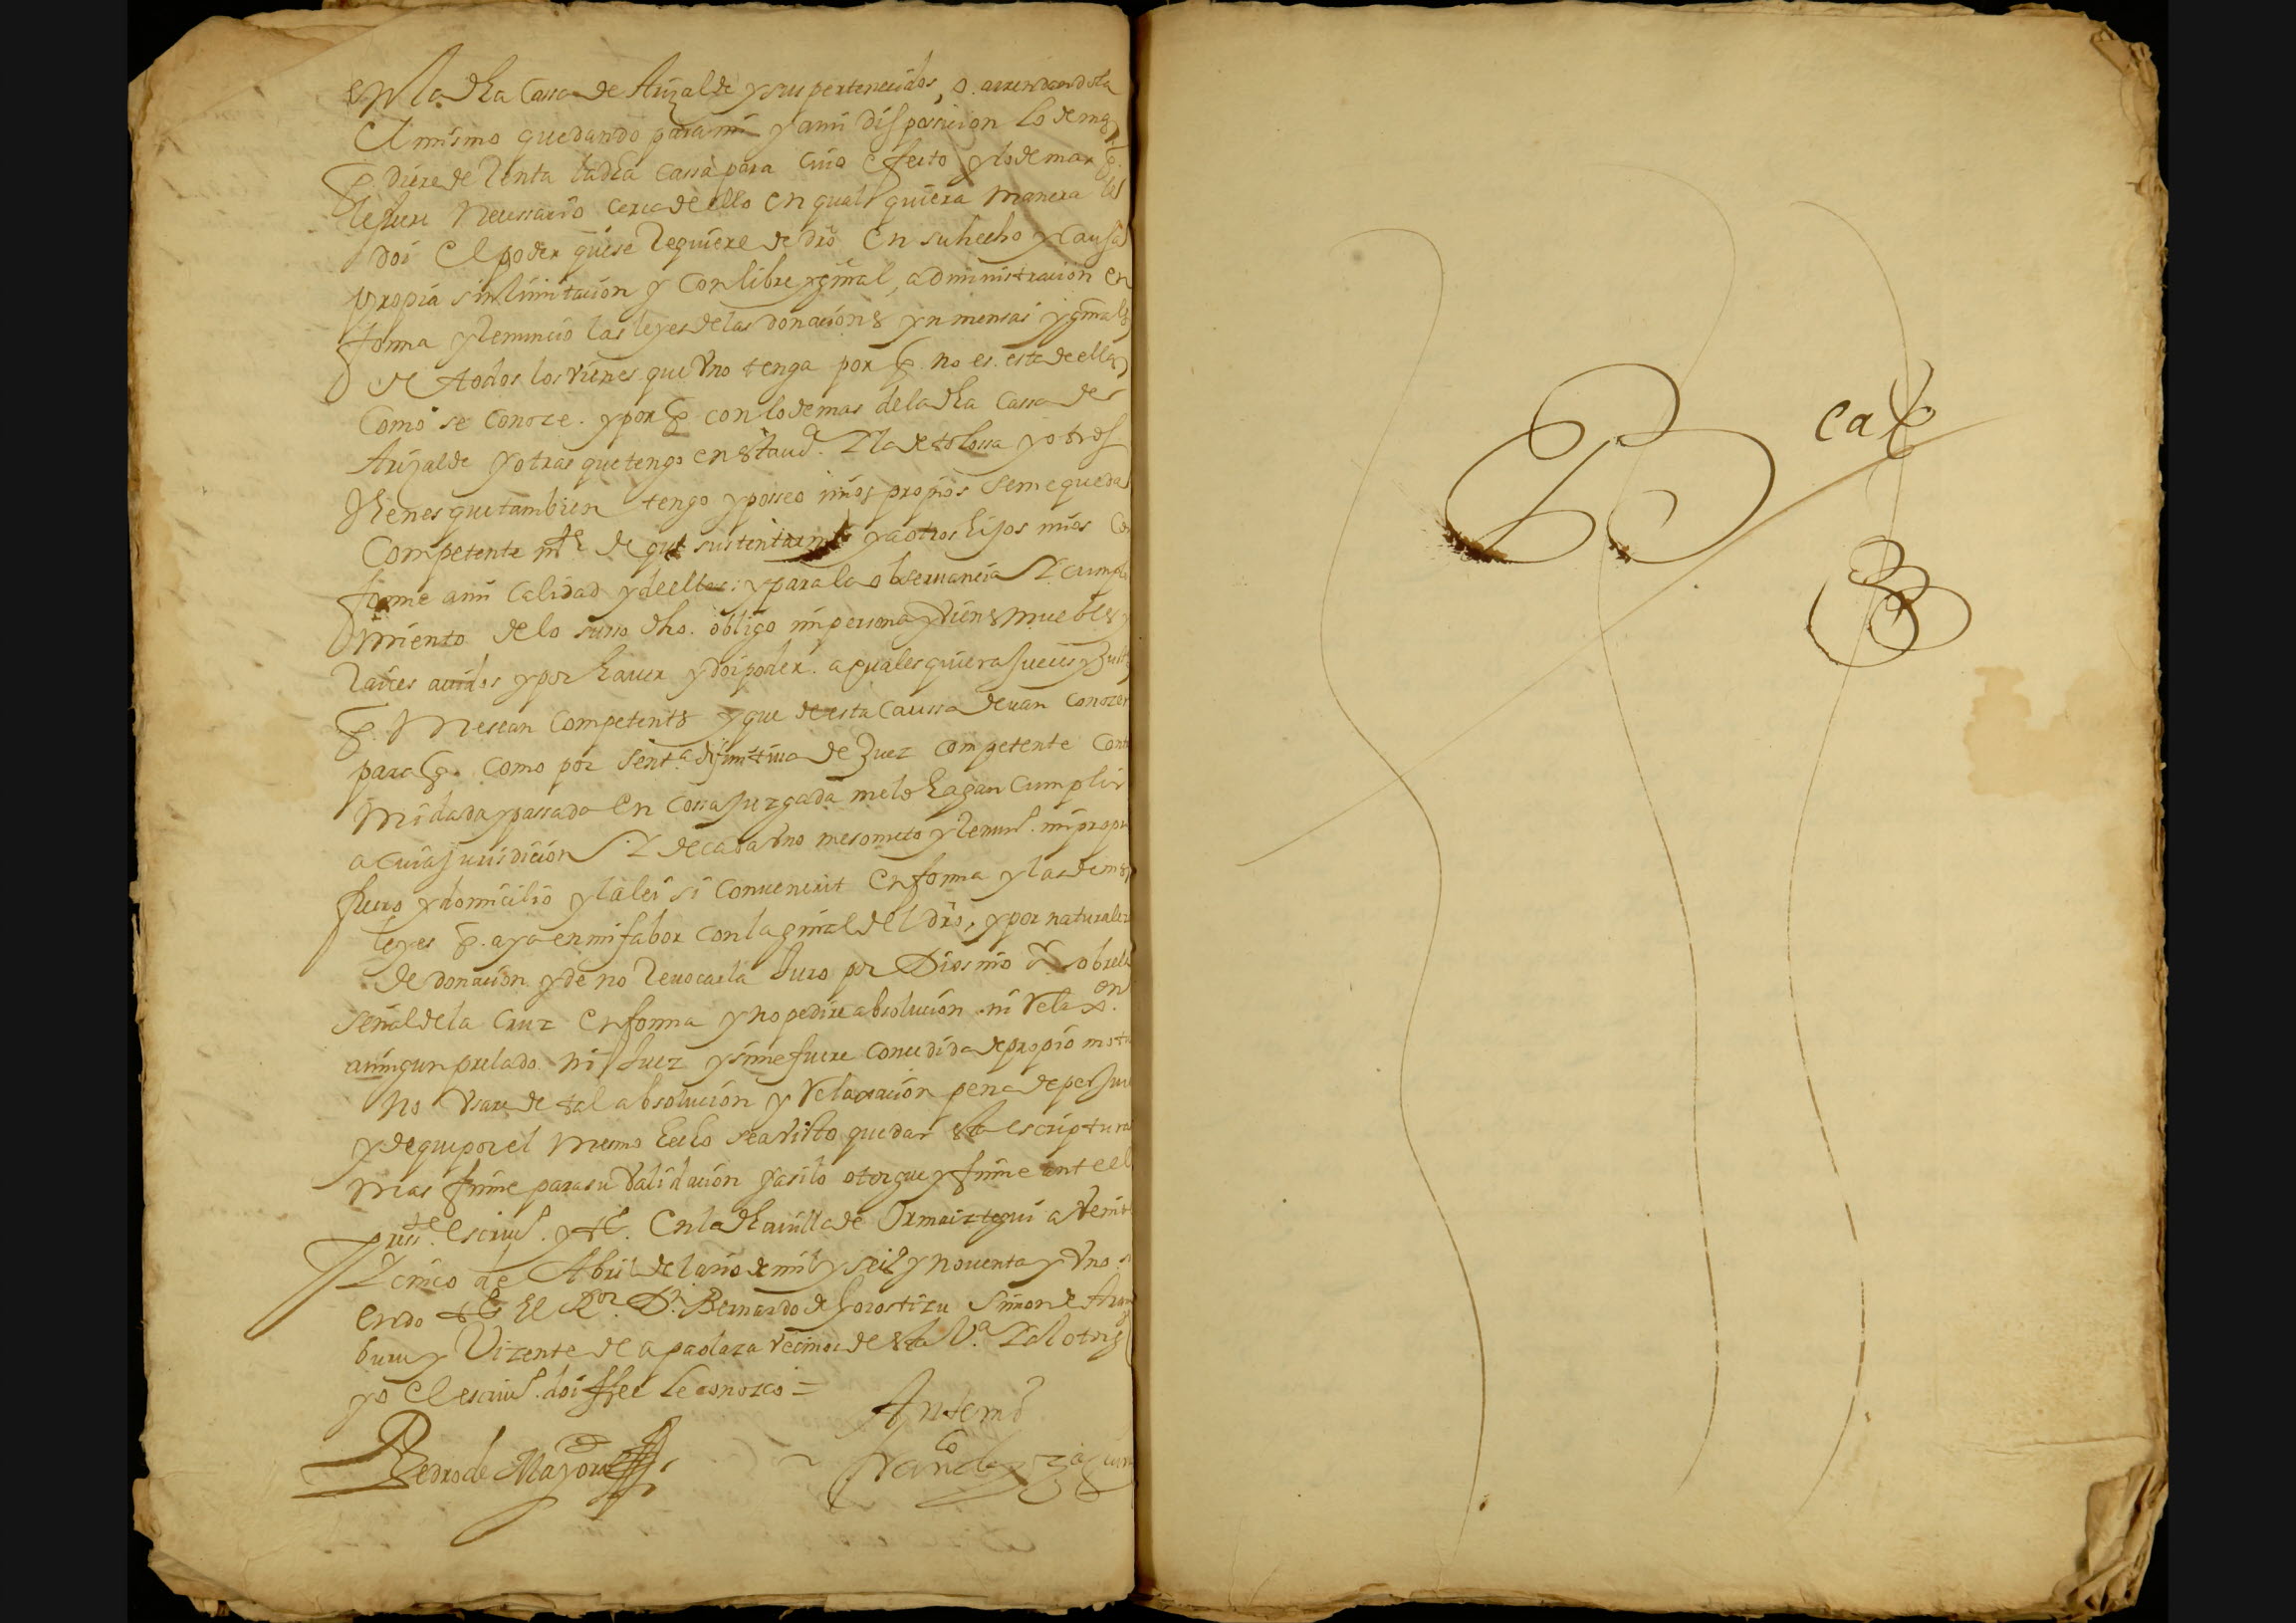 en la dha Cassa de Arizalde y sus pertenecidos, o arrendandola
el mismo quedando para mi y a mi disposicion lo demas
q. diere de Renta la dha Cassa para cuio efecto y lo demas q.
le fuere necessario cerca de ello en qualquiera manera les
doi el poder que se Requiere de dro en su hecho y causa
propia sin limitacion y con libre y gnral administracion en
forma y Renuncio las leyes de las donaciones ynmensas y gnrales
de todos los vienes que Vno tenga por q. no es esta de ellas
Como se conoze. y por q. con lo demas de la dha Cassa de
Arizalde y otras que tengo en esta
vienes que tambien tengo y posseo mios propios se me queda
Competente mte de que sustentarme y a otros hijos mios con
forme a mi Calidad y de ellos: y para la obseruancia y cumpli
miento de lo suso dho. obligo mi persona y vienes muebles y
Raices auidos y por hauer y doi poder a qualesquiera Jueces y Just
q. me sean Competentes y que de esta Caussa deuan conozer
para q. como por Senta difinitiua de Juez competente contra
mi dada y passada en Cossa Juzgada me lo hagan Cumplir
a cuia jurisdicion y de cada vno me someto y Renuo. mi propio
fuero y domicilio y la lei si conuenerit en forma y las demas
leyes q. aya en mi fabor con la gnral del dro, y por naturaleza
de donacion y de no Reuocarla Juro por Dios nro Sr. sobre la
señal de la Cruz en forma y no pedire absolucion ni Relaxon.
a ningun prelado ni Juez y si me fuere concedida de propio motu
no Vsare de tal absolucion y Relaxacion pena de perjuro
y de que por el mismo hecho sea visto quedar esta escriptura
mas firme para su validacion y asi lo otorgue y firme ante el
presste. escriuo. y tsº. En la dha villa de Ormaiztegui a veinte
y cinco de Abril del año de mil y seisº y nouenta y Vno si
endo tsº El Ror. Dn. Bernardo de Gorostizu Simon de Aram
buru y Vizente de apaolaza vecinos de esta Vª. y el otorgte
yo el escriuo. doi ffee le conozco =
Ante mi
Pedro de Mayora
Franco